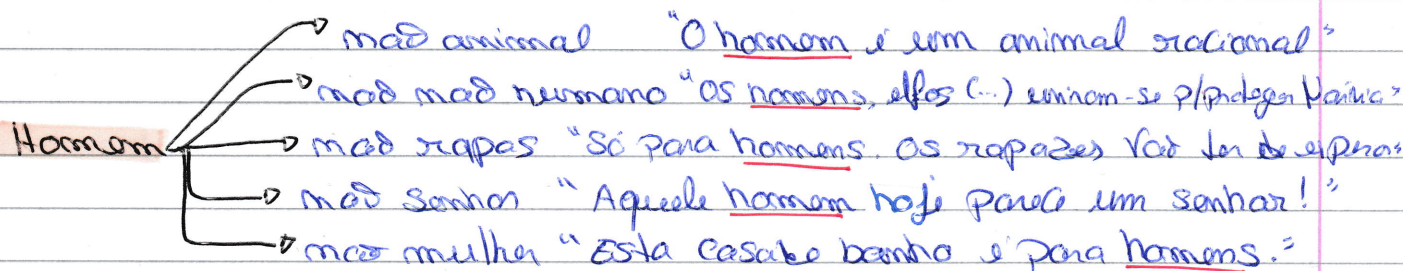 não animal "O homem é um animal racional"
não não humano "Os homens, elfos (...) uniram-se p/proteger Nárnia"
Homem não rapas "Só para homens. Os rapazes vão ter de esperar"
não senhor "Aquele homem hoje parece um senhor!"
não mulher "Esta casa de banho é para homens."